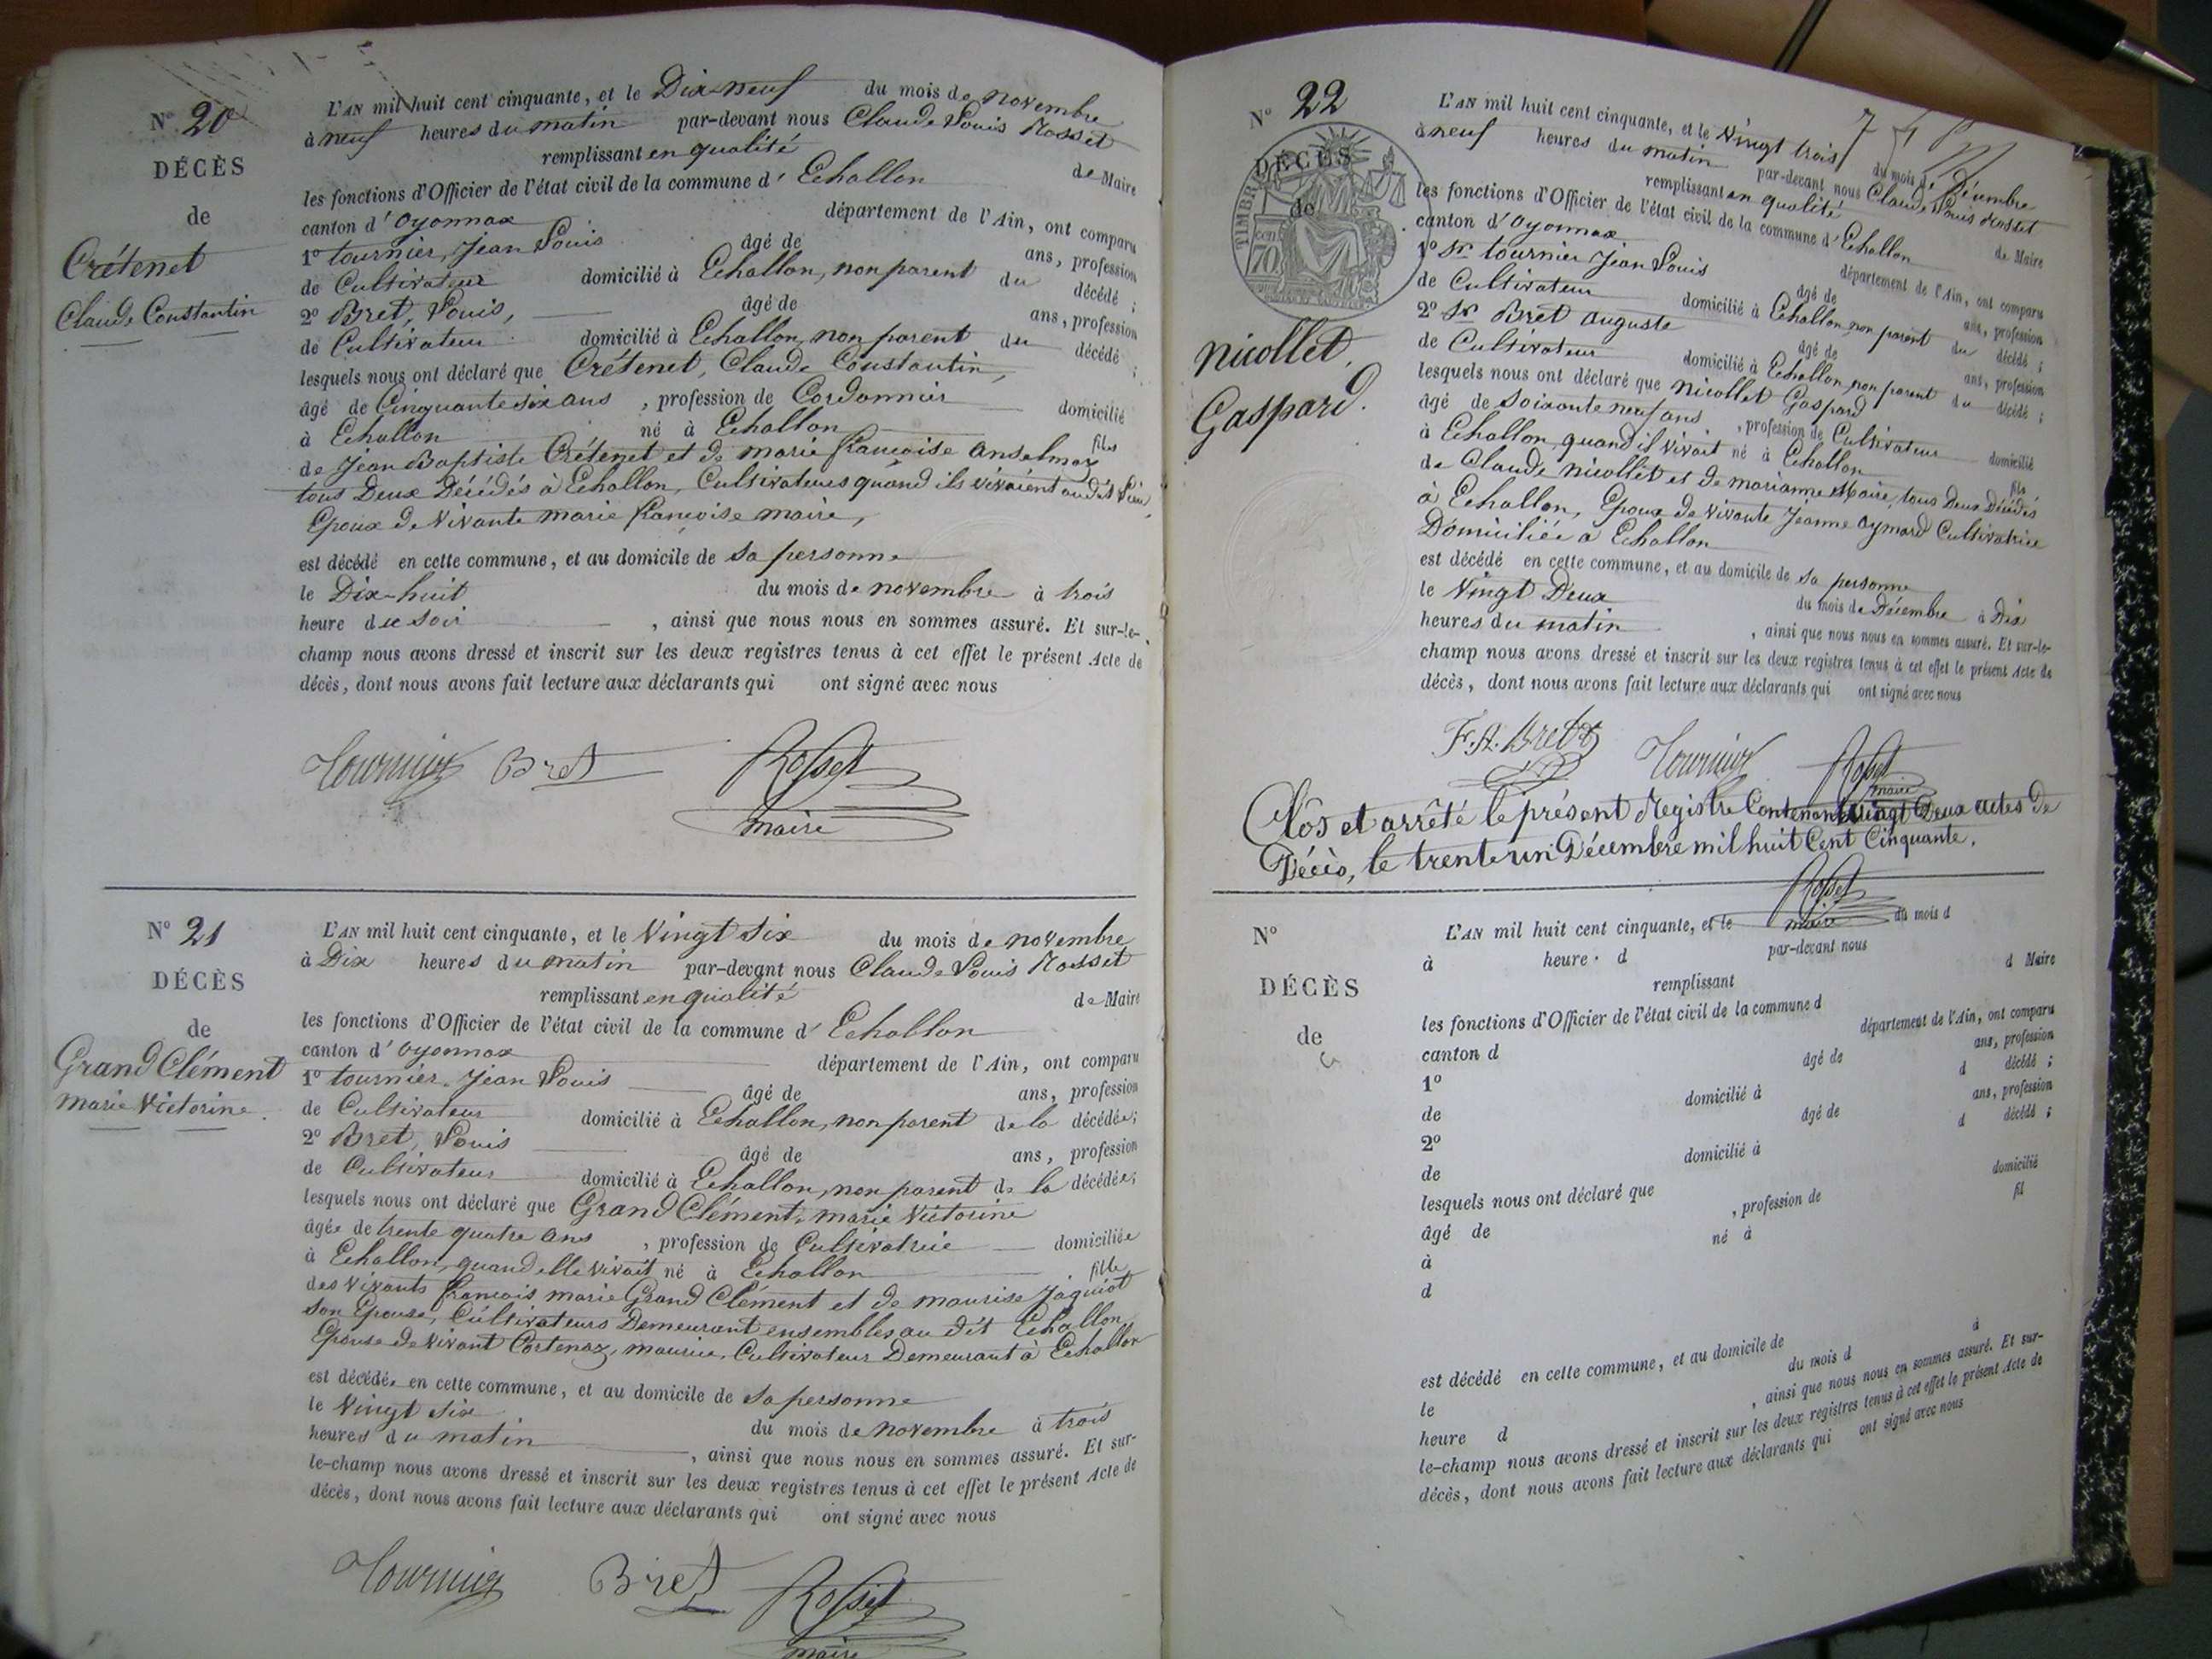 N° 20
DÉCÈS
de
Crétenet
Claude Constantin
L'AN mil huit cent cinquante, et le Dix-neuf du mois de novembre
à neuf heures du matin par-devant nous Claude Louis Rosset
remplissant en qualité de Maire
les fonctions d'Officier de l'état civil de la commune d' Echallon
canton d'Oyonnax département de l'Ain, ont comparu
1° tournier, Jean Louis âgé de ans, profession
de Cultivateur domicilié à Echallon, non parent du décédé ;
2° Bret, Louis, âgé de ans, profession
de Cultivateur domicilié à Echallon, non parent du décédé ;
lesquels nous ont déclaré que Crétenet, Claude Constantin,
âgé de Cinquante six ans , profession de Cordonnier domicilié
à Echallon né à Echallon fils
de Jean Baptiste Crétenet et de marie françoise anselmoz
tous Deux Décédés à Echallon, Cultivateurs quand ils vivaient audit lieu,
Epoux de vivante marie françoise maire,
est décédé en cette commune, et au domicile de sa personne
le Dix-huit du mois de novembre à trois
heure du soir , ainsi que nous nous en sommes assuré. Et sur-le-
champ nous avons dressé et inscrit sur les deux registres tenus à cet effet le présent Acte de
décès, dont nous avons fait lecture aux déclarants qui ont signé avec nous
Tournier Bret Rosset
maire
N° 21
DÉCÈS
de
Grand Clément
marie Victorine.
L'AN mil huit cent cinquante, et le Vingt six du mois de novembre
à Dix heures du matin par-devant nous Claude Louis Rosset
remplissant en qualité de Maire
les fonctions d'Officier de l'état civil de la commune d' Echallon
canton d'Oyonnax département de l'Ain, ont comparu
1° tournier, Jean Louis âgé de ans, profession
de Cultivateur domicilié à Echallon, non parent de la décédée;
2° Bret, Louis âgé de ans, profession
de Cultivateur domicilié à Echallon, non parent de la décédée;
lesquels nous ont déclaré que Grand Clément, marie Victorine
âgée de trente quatre ans , profession de Cultivatrice domiciliée
à Echallon, quand elle vivait né à Echallon fille
des vivants françois marie Grand Clément et de maurise Jaquiot
son Epouse, Cultivateurs Demeurant ensembles au dit Echallon,
Epouse de vivant Cortenaz, maurice, Cultivateur Demeurant à Echallon
est décédée en cette commune, et au domicile de sa personne
le Vingt six du mois de novembre à trois
heures du matin , ainsi que nous nous en sommes assuré. Et sur-
le-champ nous avons dressé et inscrit sur les deux registres tenus à cet effet le présent Acte de
décès, dont nous avons fait lecture aux déclarants qui ont signé avec nous
Tournier Bret Rosset
maire
N° 22
DÉCÈS
de
TIMBRE
70
nicollet,
Gaspard.
L'AN mil huit cent cinquante, et le Vingt trois du mois de Décembre
à neuf heures du matin par-devant nous Claude Louis Rosset
remplissant en qualité de Maire
les fonctions d'Officier de l'état civil de la commune d'Echallon
canton d'Oyonnax département de l'Ain, ont comparu
1° Sr tournier Jean Louis âgé de ans, profession
de Cultivateur domicilié à Echallon non parent du décédé ;
2° Sr Bret auguste âgé de ans, profession
de Cultivateur domicilié à Echallon, non parent du décédé ;
lesquels nous ont déclaré que nicollet Gaspard
âgé de soixante neuf ans , profession de Cultivateur domicilié
à Echallon, quand il vivait né à Echallon fils
de Claude nicollet et de marianne Maire, tous Deux Décédés
à Echallon, Epoux de vivante Jeanne aymard Cultivatrice
Domiciliée à Echallon
est décédé en cette commune, et au domicile de sa personne
le Vingt Deux du mois de Décembre à Dix
heures du matin , ainsi que nous nous en sommes assuré. Et sur-le-
champ nous avons dressé et inscrit sur les deux registres tenus à cet effet le présent Acte de
décès, dont nous avons fait lecture aux déclarants qui ont signé avec nous
F.A. Bret Tournier Rosset
maire
Clos et arrêté le présent Registre Contenant vingt Deux actes de
Décès, le trente un Décembre mil huit Cent Cinquante.
Rosset
maire
N°
DÉCÈS
de
L'AN mil huit cent cinquante, et le du mois d
à heure d par-devant nous
remplissant d Maire
les fonctions d'Officier de l'état civil de la commune d
canton d département de l'Ain, ont comparu
1° âgé de ans, profession
de domicilié à d décédé ;
2° âgé de ans, profession
de domicilié à d décédé ;
lesquels nous ont déclaré que
âgé de , profession de domicilié
à né à fil
d
est décédé en cette commune, et au domicile de
le du mois d à
heure d , ainsi que nous nous en sommes assuré. Et sur-
le-champ nous avons dressé et inscrit sur les deux registres tenus à cet effet le présent Acte de
décès, dont nous avons fait lecture aux déclarants qui ont signé avec nous